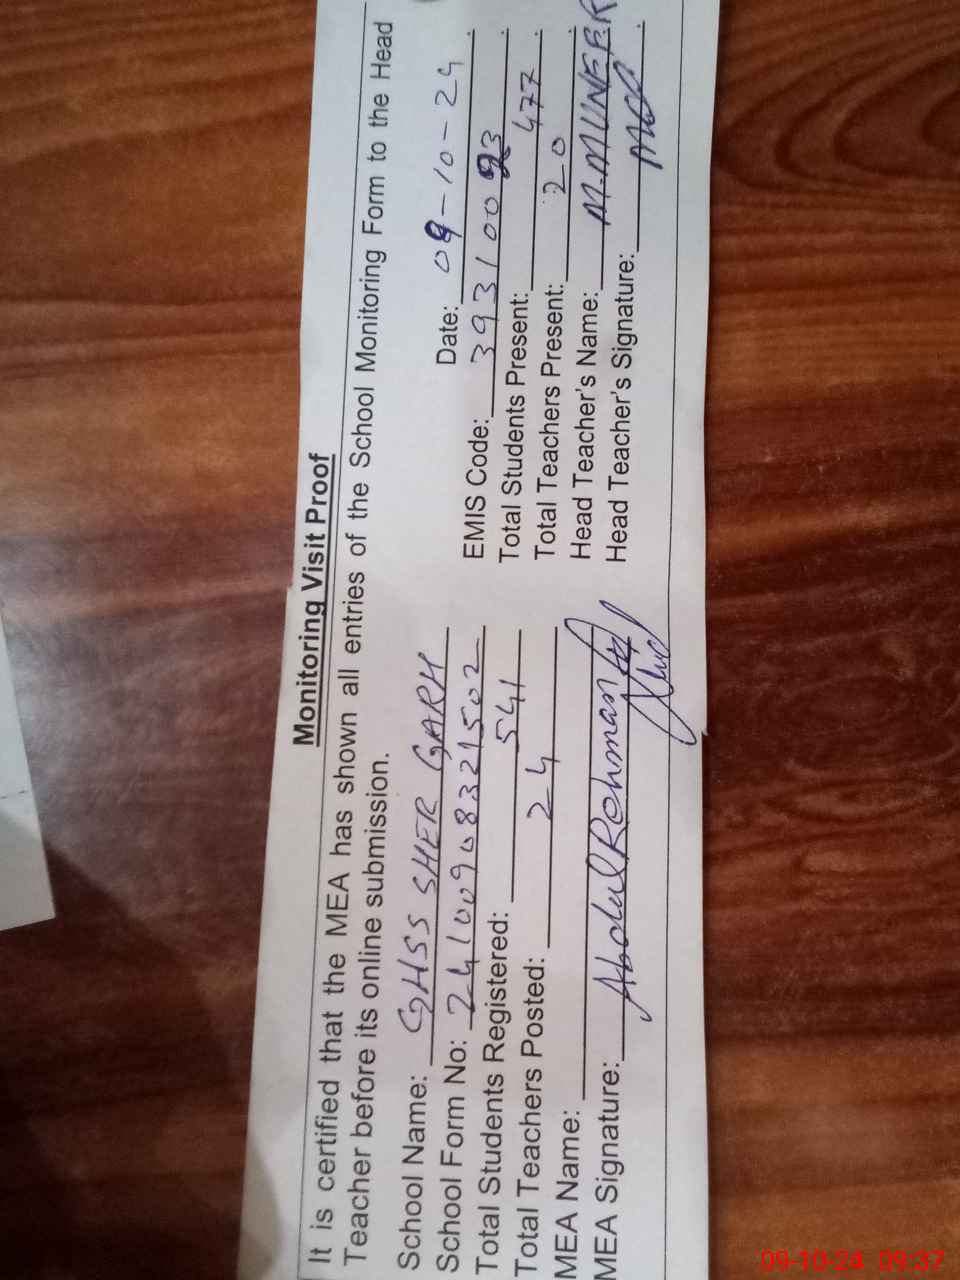 Monitoring Visit Proof
It is certified that the MEA has shown all entries of the School Monitoring Form to the Head
Teacher before its online submission.
Date: 09-10-24
School Name: GHSS SHER GARH
EMIS Code: 39310093
School Form No: 24100908321502
Total Students Present: 477
Total Students Registered: 541
Total Teachers Present: 20
Total Teachers Posted: 24
Head Teacher's Name: M.MUNEER
MEA Name: Abdul Rehman
Head Teacher's Signature:
MEA Signature:
09-10-24 09:37